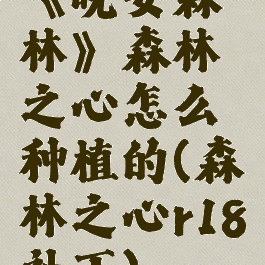 《晚安森
林》森林
之心怎么
种植的(森
林之心r18
补丁)